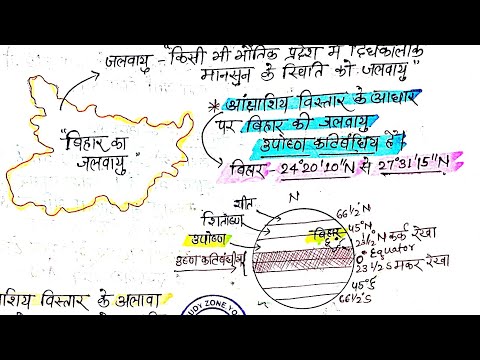 जलवायु - "किसी भी भौतिक प्रदेश में दिर्घकालीक
मानसुन के स्थिति को जलवायु"
"बिहार का
जलवायु"
* आंक्षाशिय विस्तार के आधार
पर बिहार की जलवायु
उपोष्ण कटिबंधिय है
बिहार - 24°20'10"N से 27°31'15"N
N
शीत
शितोष्ण
उपोष्ण
उष्ण कटिबंध
बिहार
66 1/2°N
45°N
23 1/2°N कर्क रेखा
0° Equator
23 1/2 S मकर रेखा
45°S
66 1/2 S
शिय विस्तार के अलावा
UDY ZONE YO